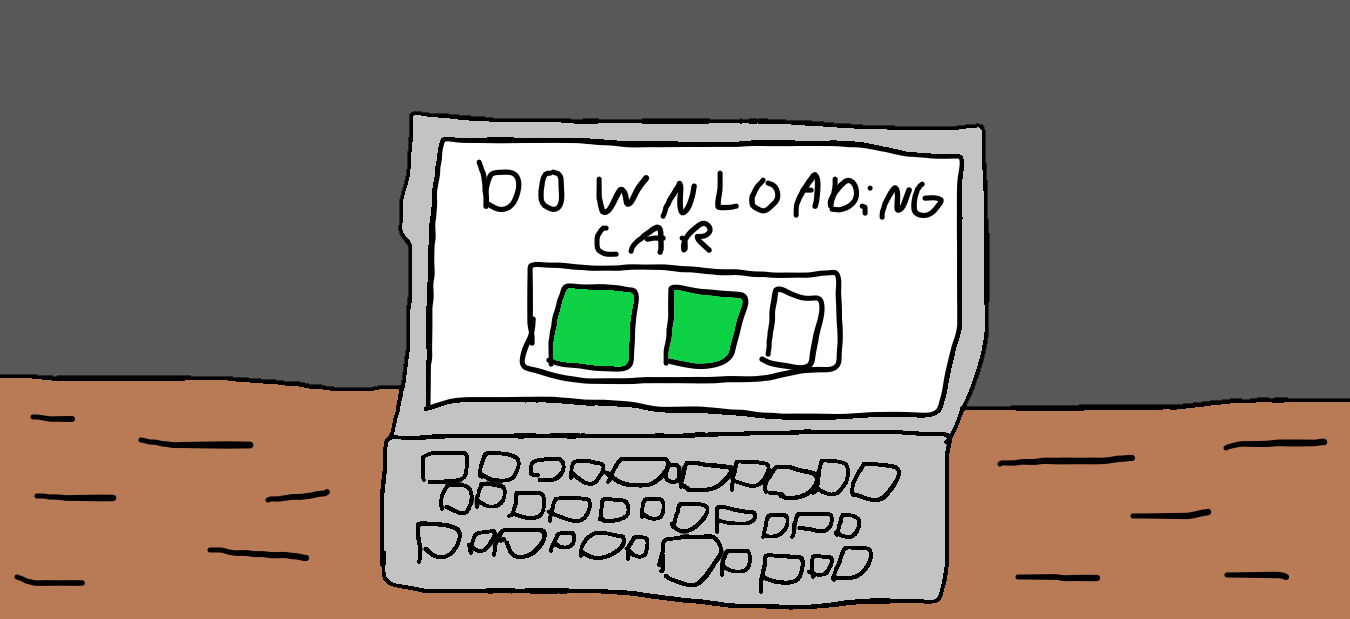 DOWNLOADiNG
CAR